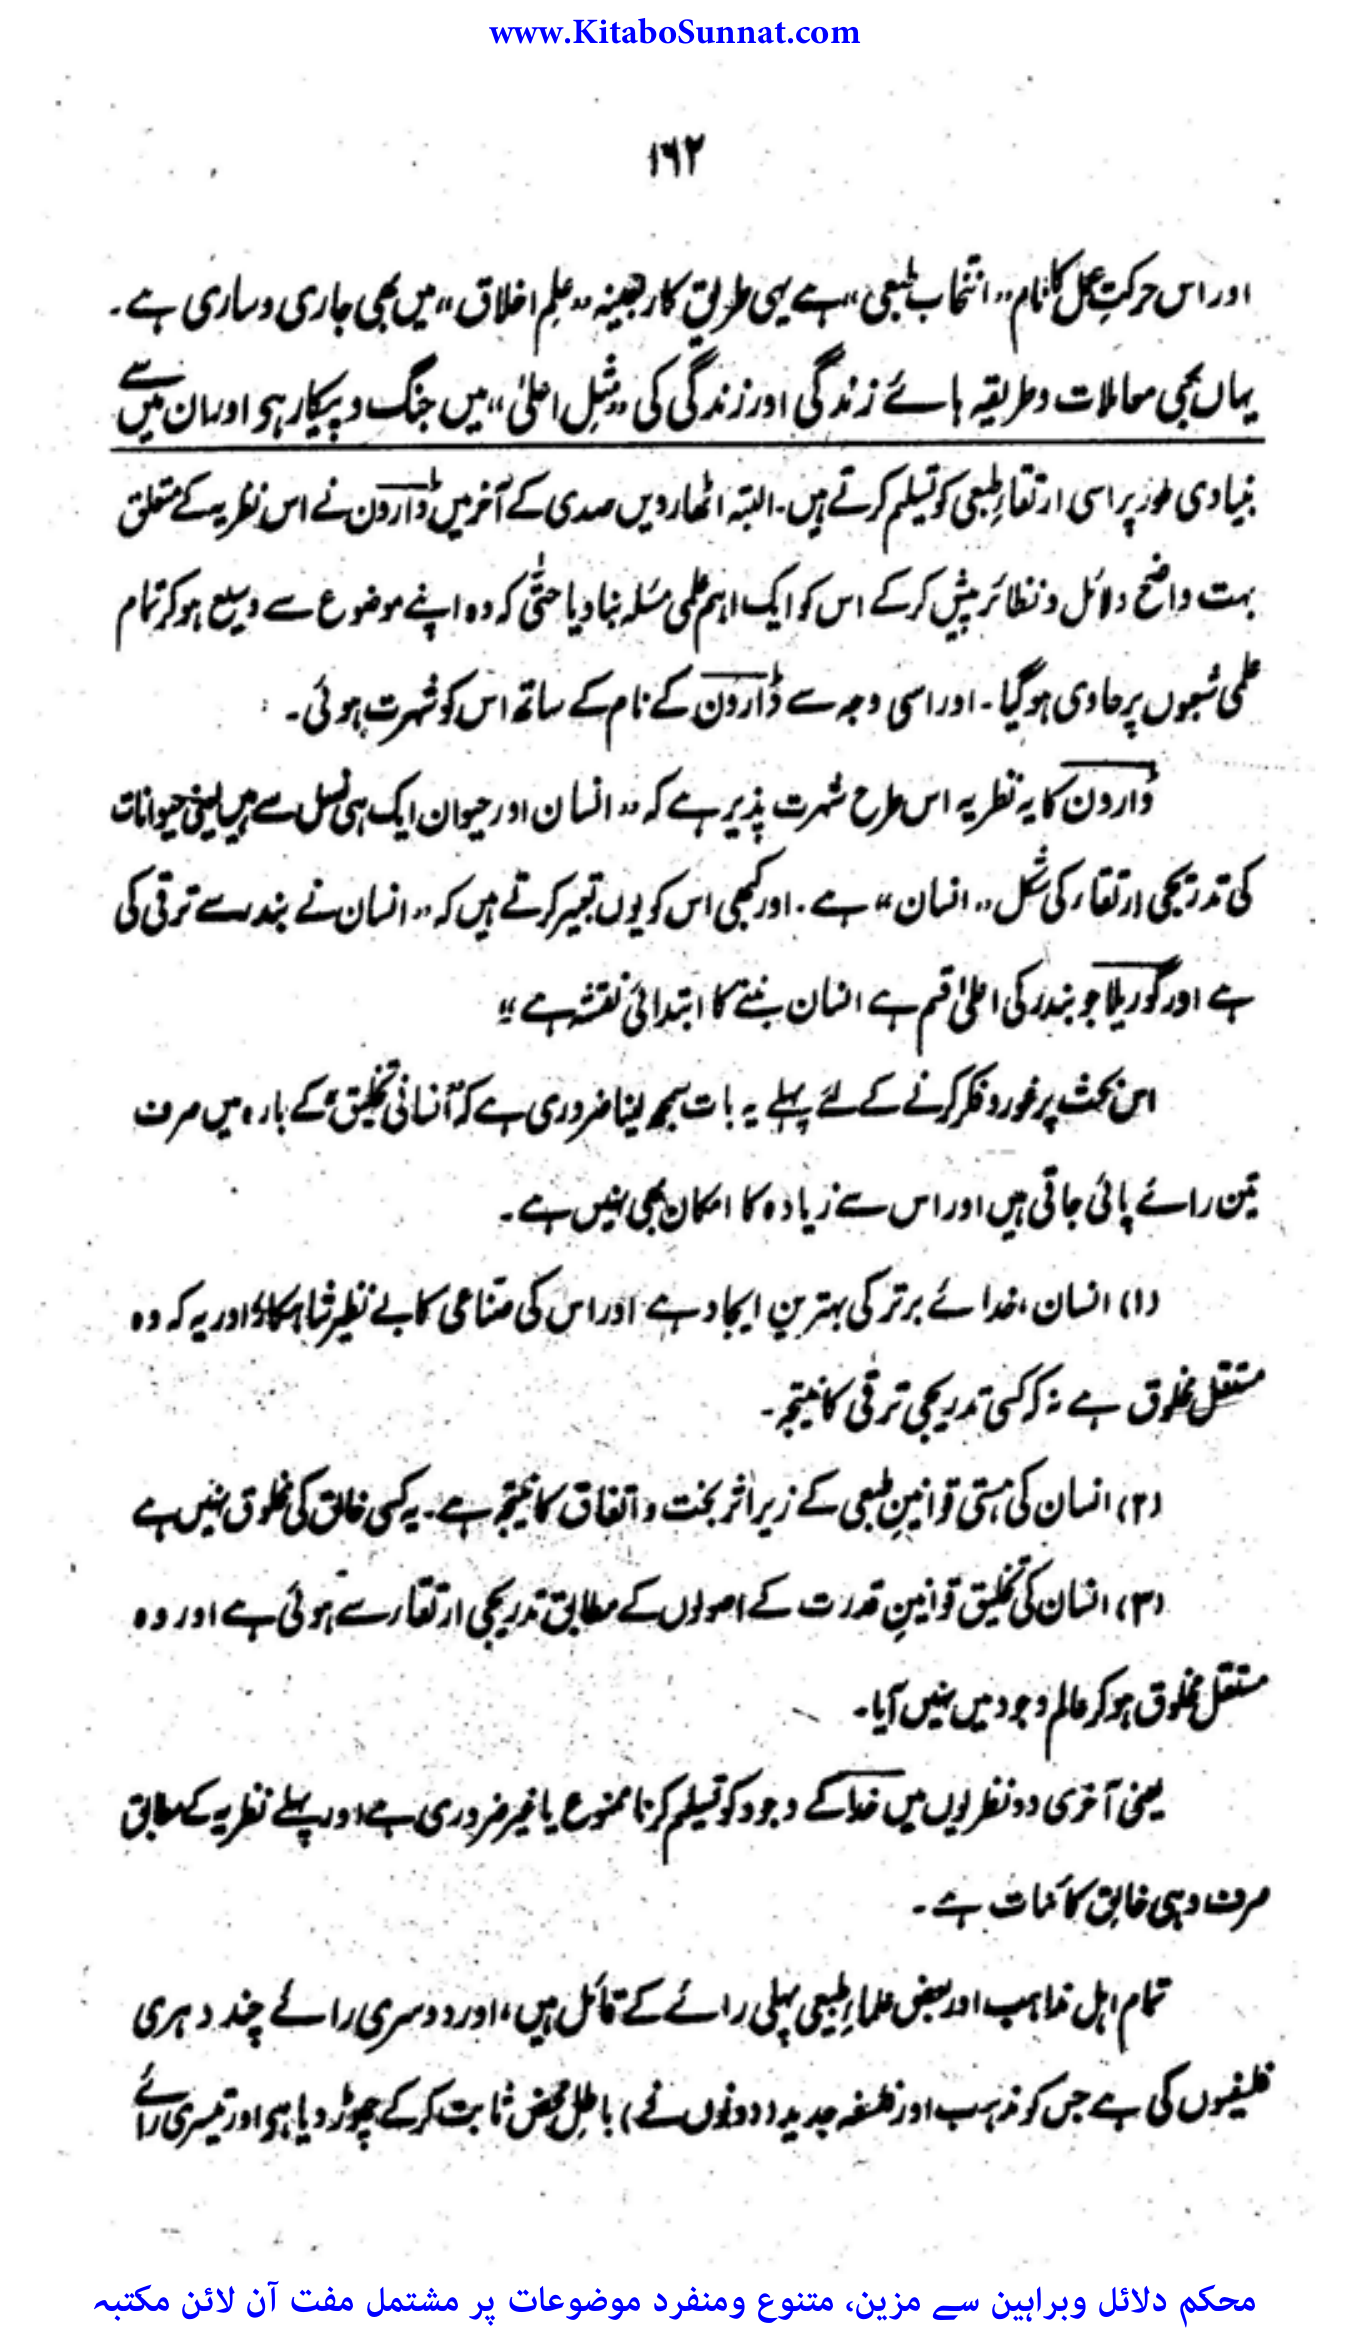 www.KitaboSunnat.com
۱۶۲
اور اس حرکتِ عمل کا نام ”انتخاب طبعی“ ہے یہی طریقِ کار بعینہ ”علم اخلاق“ میں بھی جاری و ساری ہے۔
یہاں بھی معاملات و طریقہ ہائے زندگی اور زندگی کی ”مثلِ اعلیٰ“ میں جنگ و پیکار ہو اور ان میں سے
بنیادی طور پر اسی ارتقاء طبعی کو تسلیم کرتے ہیں۔ البتہ اٹھارویں صدی کے آخر میں ڈارون نے اس نظریہ کے متعلق
بہت واضح دلائل و نظائر پیش کرکے اس کو ایک اہم علمی مسئلہ بنا دیا حتّٰی کہ وہ اپنے موضوع سے وسیع ہو کر تمام
علمی شعبوں پر حاوی ہو گیا۔ اور اسی وجہ سے ڈارون کے نام کے ساتھ اس کو شہرت ہوئی۔
ڈارون کا یہ نظریہ اس طرح شہرت پذیر ہے کہ ”انسان اور حیوان ایک ہی نسل سے ہیں یعنی حیوانات
کی تدریجی ارتقاء کی شکل ”انسان“ ہے۔ اور کبھی اس کو یوں تعبیر کرتے ہیں کہ ”انسان نے بندر سے ترقی کی
ہے اور گوریلا جو بندر کی اعلیٰ قسم ہے انسان بننے کا ابتدائی نقشہ ہے“
اس بحث پر غور و فکر کرنے کے لئے پہلے یہ بات سمجھ لینا ضروری ہے کہ ”انسانی تخلیق“ کے بارہ میں صرف
تین رائے پائی جاتی ہیں اور اس سے زیادہ کا امکان بھی نہیں ہے۔
(۱) انسان، خدائے برتر کی بہترین ایجاد ہے اور اس کی صناعی کا بے نظیر شاہکار، اور یہ کہ وہ
مستقل مخلوق ہے نہ کہ کسی تدریجی ترقی کا نتیجہ۔
(۲) انسان کی ہستی قوانینِ طبعی کے زیر اثر بخت و اتفاق کا نتیجہ ہے۔ یہ کسی خالق کی مخلوق نہیں ہے
(۳) انسان کی تخلیق قوانینِ قدرت کے اصولوں کے مطابق تدریجی ارتقاء سے ہوئی ہے اور وہ
مستقل مخلوق ہو کر عالم وجود میں نہیں آیا۔
یعنی آخری دو نظریوں میں خدا کے وجود کو تسلیم کرنا ممنوع یا غیر ضروری ہے اور پہلے نظریہ کے مطابق
صرف وہی خالق کائنات ہے۔
تمام اہل مذاہب اور بعض علماءِ طبیعی پہلی رائے کے قائل ہیں، اور دوسری رائے چند دہری
فلسفیوں کی ہے جس کو مذہب اور فلسفہ جدید (دونوں نے) باطلِ محض ثابت کرکے چھوڑ دیا ہو اور تیسری رائے
محکم دلائل وبراہین سے مزین، متنوع ومنفرد موضوعات پر مشتمل مفت آن لائن مکتبہ